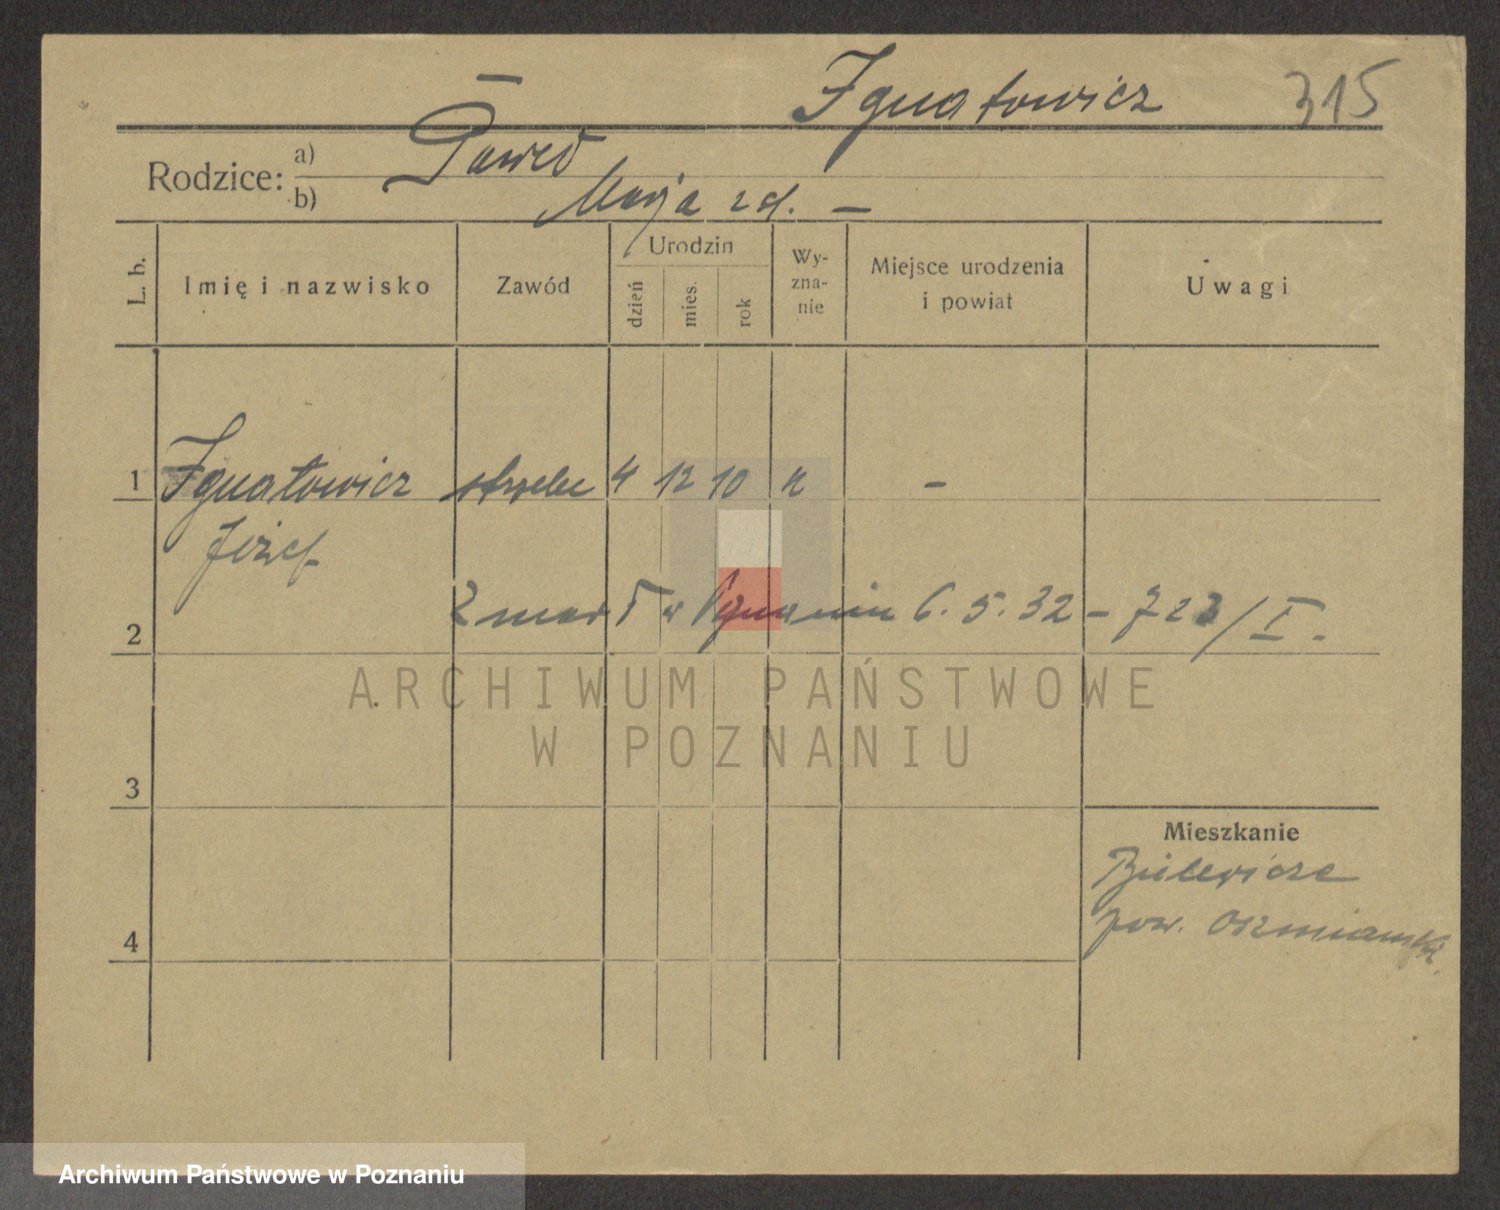 Ignatowicz 315
Rodzice: a) Paweł
b) Marja zd. —
L. b.
Imię i nazwisko
Zawód
Urodzin
dzień
mies.
rok
Wy-
zna-
nie
Miejsce urodzenia
i powiat
Uwagi
1 Ignatowicz 4 12 10 –
Józef
2 Zmarł w Poznaniu 6.5.32 – 723/I.
3
4
Mieszkanie
pow. Oszmiański
ARCHIWUM PAŃSTWOWE
W POZNANIU
Archiwum Państwowe w Poznaniu